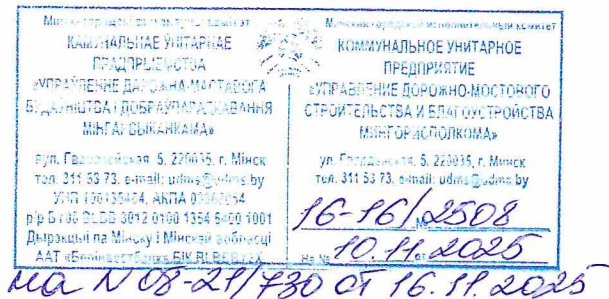 Мінскі гарадскі выканаўчы камітэт
КАМУНАЛЬНАЕ ЎНІТАРНАЕ
ПРАДПРЫЕМСТВА
«УПРАЎЛЕННЕ ДАРОЖНА-МАСТАВОГА
БУДАЎНІЦТВА І ДОБРАЎПАРАДКАВАННЯ
МІНГАРВЫКАНКАМА»
вул. 5, 220035, г. Мінск
тел. 311 53 73, e-mail: udms@udms.by
УНП АКПА
р/р BLBB 3012 0100 1354 6400 1001
Дырэкцыі па Мінску і Мінскай вобласці
ААТ «Белінвестбанк»
Минский городской исполнительный комитет
КОММУНАЛЬНОЕ УНИТАРНОЕ
ПРЕДПРИЯТИЕ
«УПРАВЛЕНИЕ ДОРОЖНО-МОСТОВОГО
СТРОИТЕЛЬСТВА И БЛАГОУСТРОЙСТВА
МИНГОРИСПОЛКОМА»
ул. 5, 220035, г. Минск
тел. 311 53 73, e-mail: udms@udms.by
16-16/ № 2508
На № 10.11.2025
на N 08-21/730 от 16.11.2025